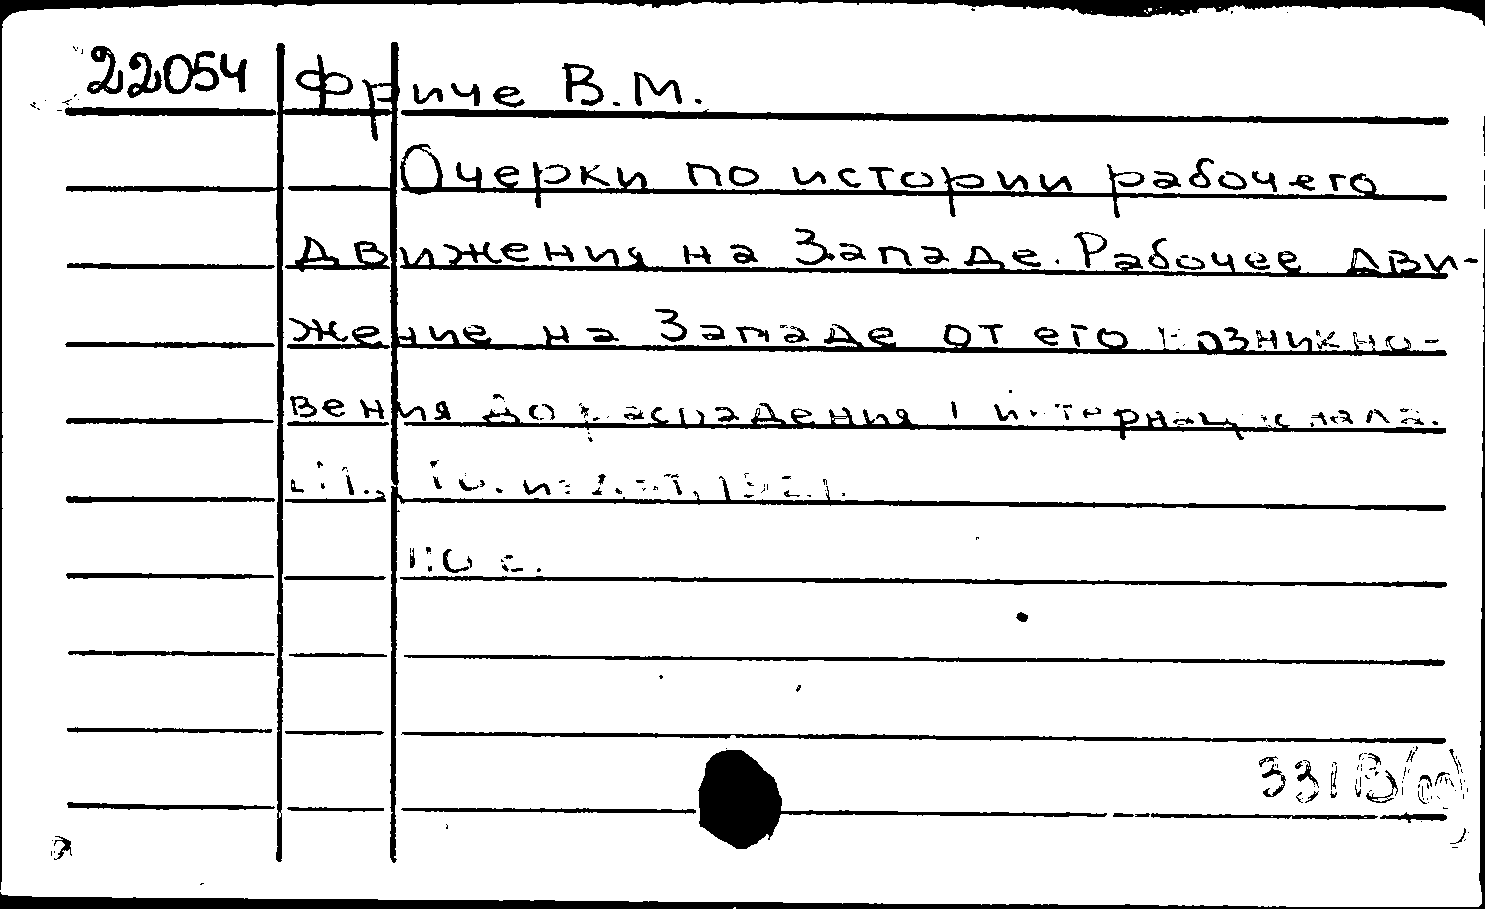 22054 Фриче В.М.
Очерки по истории рабочего
движения на Западе. Рабочее дви-
жение на Западе от его возникно-
вения до распадения I интернационала.
331В(09)